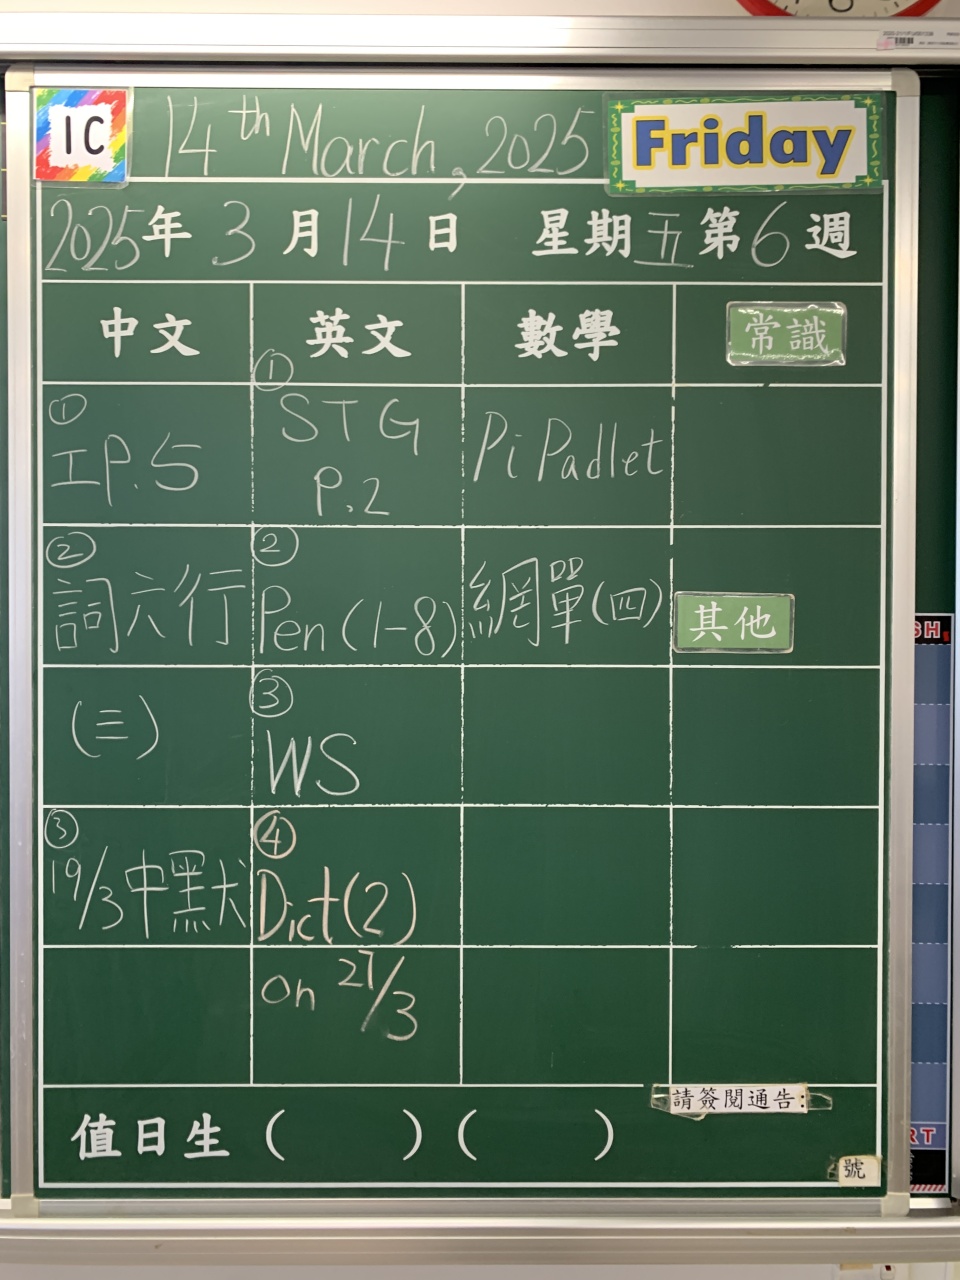 1C
14th March, 2025
Friday
2025年3月14日 星期五第6週
中文 英文 數學 常識
①
工P.5
①
STG
P.2
Pi Padlet
②
詞六行
(三)
②
Pen (1-8)
網單(四)
其他
③
WS
③
19/3中默
④
Dict(2)
on 27/3
請簽閱通告:
值日生 ( ) ( )
號
SH,
RT